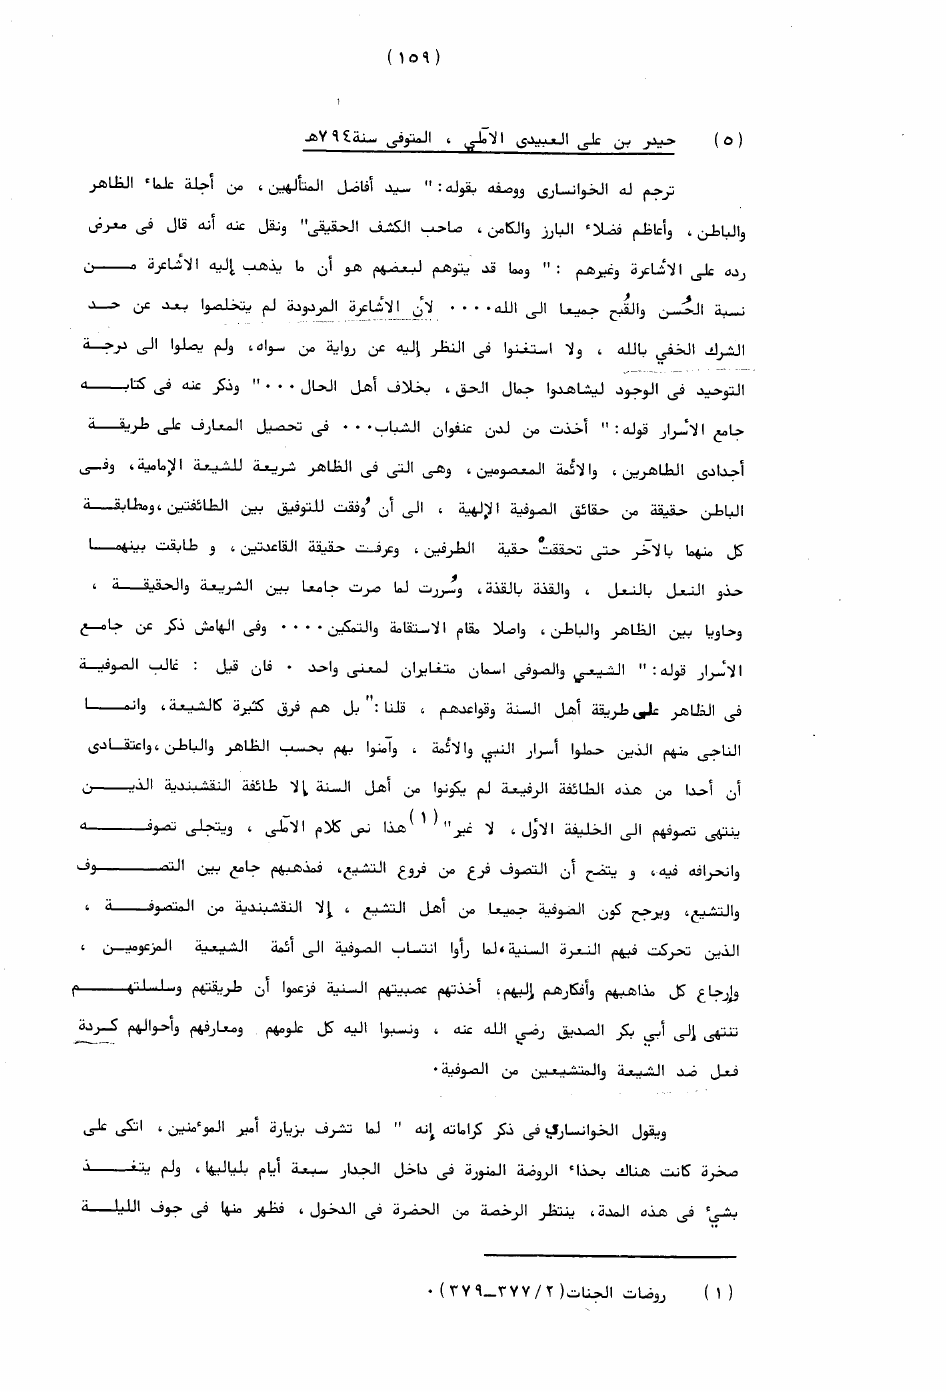 (١٥٩)
(٥) حيدر بن على العبيدى الآملي ، المتوفى سنة ٧٩٤هـ
ترجم له الخوانسارى ووصفه بقوله: " سيد أفاضل المتألهين، من أجلة علماء الظاهر
والباطن ، وأعاظم فضلاء البارز والكامن ، صاحب الكشف الحقيقى" ونقل عنه أنه قال فى معرض
رده على الأشاعرة وغيرهم : " ومما قد يتوهم لبعضهم هو أن ما يذهب إليه الأشاعرة مـــن
نسبة الحُسن والقُبح جميعا الى الله٠٠٠٠ لأن الأشاعرة المردودة لم يتخلصوا بعد عن حــد
الشرك الخفي بالله ، ولا استغنوا فى النظر إليه عن رواية من سواه، ولم يصلوا الى درجــة
التوحيد فى الوجود ليشاهدوا جمال الحق ، بخلاف أهل الحال ٠٠٠" وذكر عنه فى كتابــه
جامع الأسرار قوله: " أخذت من لدن عنفوان الشباب٠٠٠ فى تحصيل المعارف على طريقــة
أجدادى الطاهرين ، والأئمة المعصومين، وهى التى فى الظاهر شريعة للشيعة الإمامية، وفــى
الباطن حقيقة من حقائق الصوفية الإلهية ، الى أن وُفقت للتوفيق بين الطائفتين ،ومطابقــة
كل منهما بالآخر حتى تحققت حقية الطرفين ، وعرفت حقيقة القاعدتين ، و طابقت بينهمــا
حذو النعل بالنعل ، والقذة بالقذة، وسُررت لما صرت جامعا بين الشريعة والحقيقــة ،
وحاويا بين الظاهر والباطن، واصلا مقام الاستقامة والتمكين٠٠٠٠ وفى الهامش ذكر عن جامــع
الأسرار قوله: " الشيعي والصوفى اسمان متغايران لمعنى واحد ٠ فان قيل : غالب الصوفيــة
فى الظاهر على طريقة أهل السنة وقواعدهم ، قلنا:" بل هم فرق كثيرة كالشيعة، وانمــا
الناجى منهم الذين حملوا أسرار النبي والأئمة ، وآمنوا بهم بحسب الظاهر والباطن ،واعتقــادى
أن أحدا من هذه الطائفة الرفيعة لم يكونوا من أهل السنة إلا طائفة النقشبندية الذيــن
ينتهى تصوفهم الى الخليفة الأول، لا غير"(١) هذا نص كلام الآملى ، ويتجلى تصوفــه
وانحرافه فيه، و يتضح أن التصوف فرع من فروع التشيع، فمذهبهم جامع بين التصــوف
والتشيع، ويرجح كون الصوفية جميعا من أهل التشيع ، إلا النقشبندية من المتصوفــة ،
الذين تحركت فيهم النعرة السنية ،لما رأوا انتساب الصوفية الى أئمة الشيعية المزعوميــن ،
وإرجاع كل مذاهبهم وأفكارهم إليهم، أخذتهم عصبيتهم السنية فزعموا أن طريقتهم وسلسلتهــم
تنتهى إلى أبي بكر الصديق رضي الله عنه ، ونسبوا اليه كل علومهم ومعارفهم وأحوالهم كــردة
فعل ضد الشيعة والمتشيعين من الصوفية٠
ويقول الخوانساري فى ذكر كراماته إنه " لما تشرف بزيارة أمير الموءمنين ، اتكى على
صخرة كانت هناك بحذاء الروضة المنورة فى داخل الجدار سبعة أيام بلياليها، ولم يتغــذ
بشيء فى هذه المدة، ينتظر الرخصة من الحضرة فى الدخول ، فظهر منها فى جوف الليلــة
(١) روضات الجنات(٢/٣٧٧ــ٣٧٩)٠